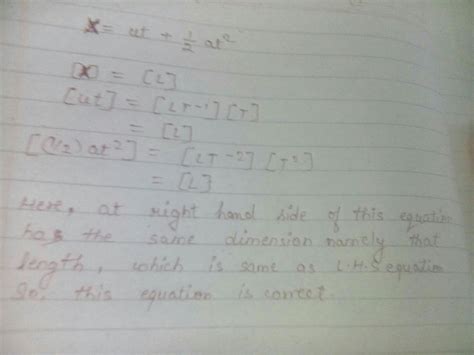 x = ut + 1/2 at²
[x] = [L]
[ut] = [LT⁻¹] [T]
= [L]
[(1/2) at²] = [LT⁻²] [T²]
= [L]
Here, at right hand side of this equation
has the same dimension namely that
length, which is same as L.H.S equation
So, this equation is correct.